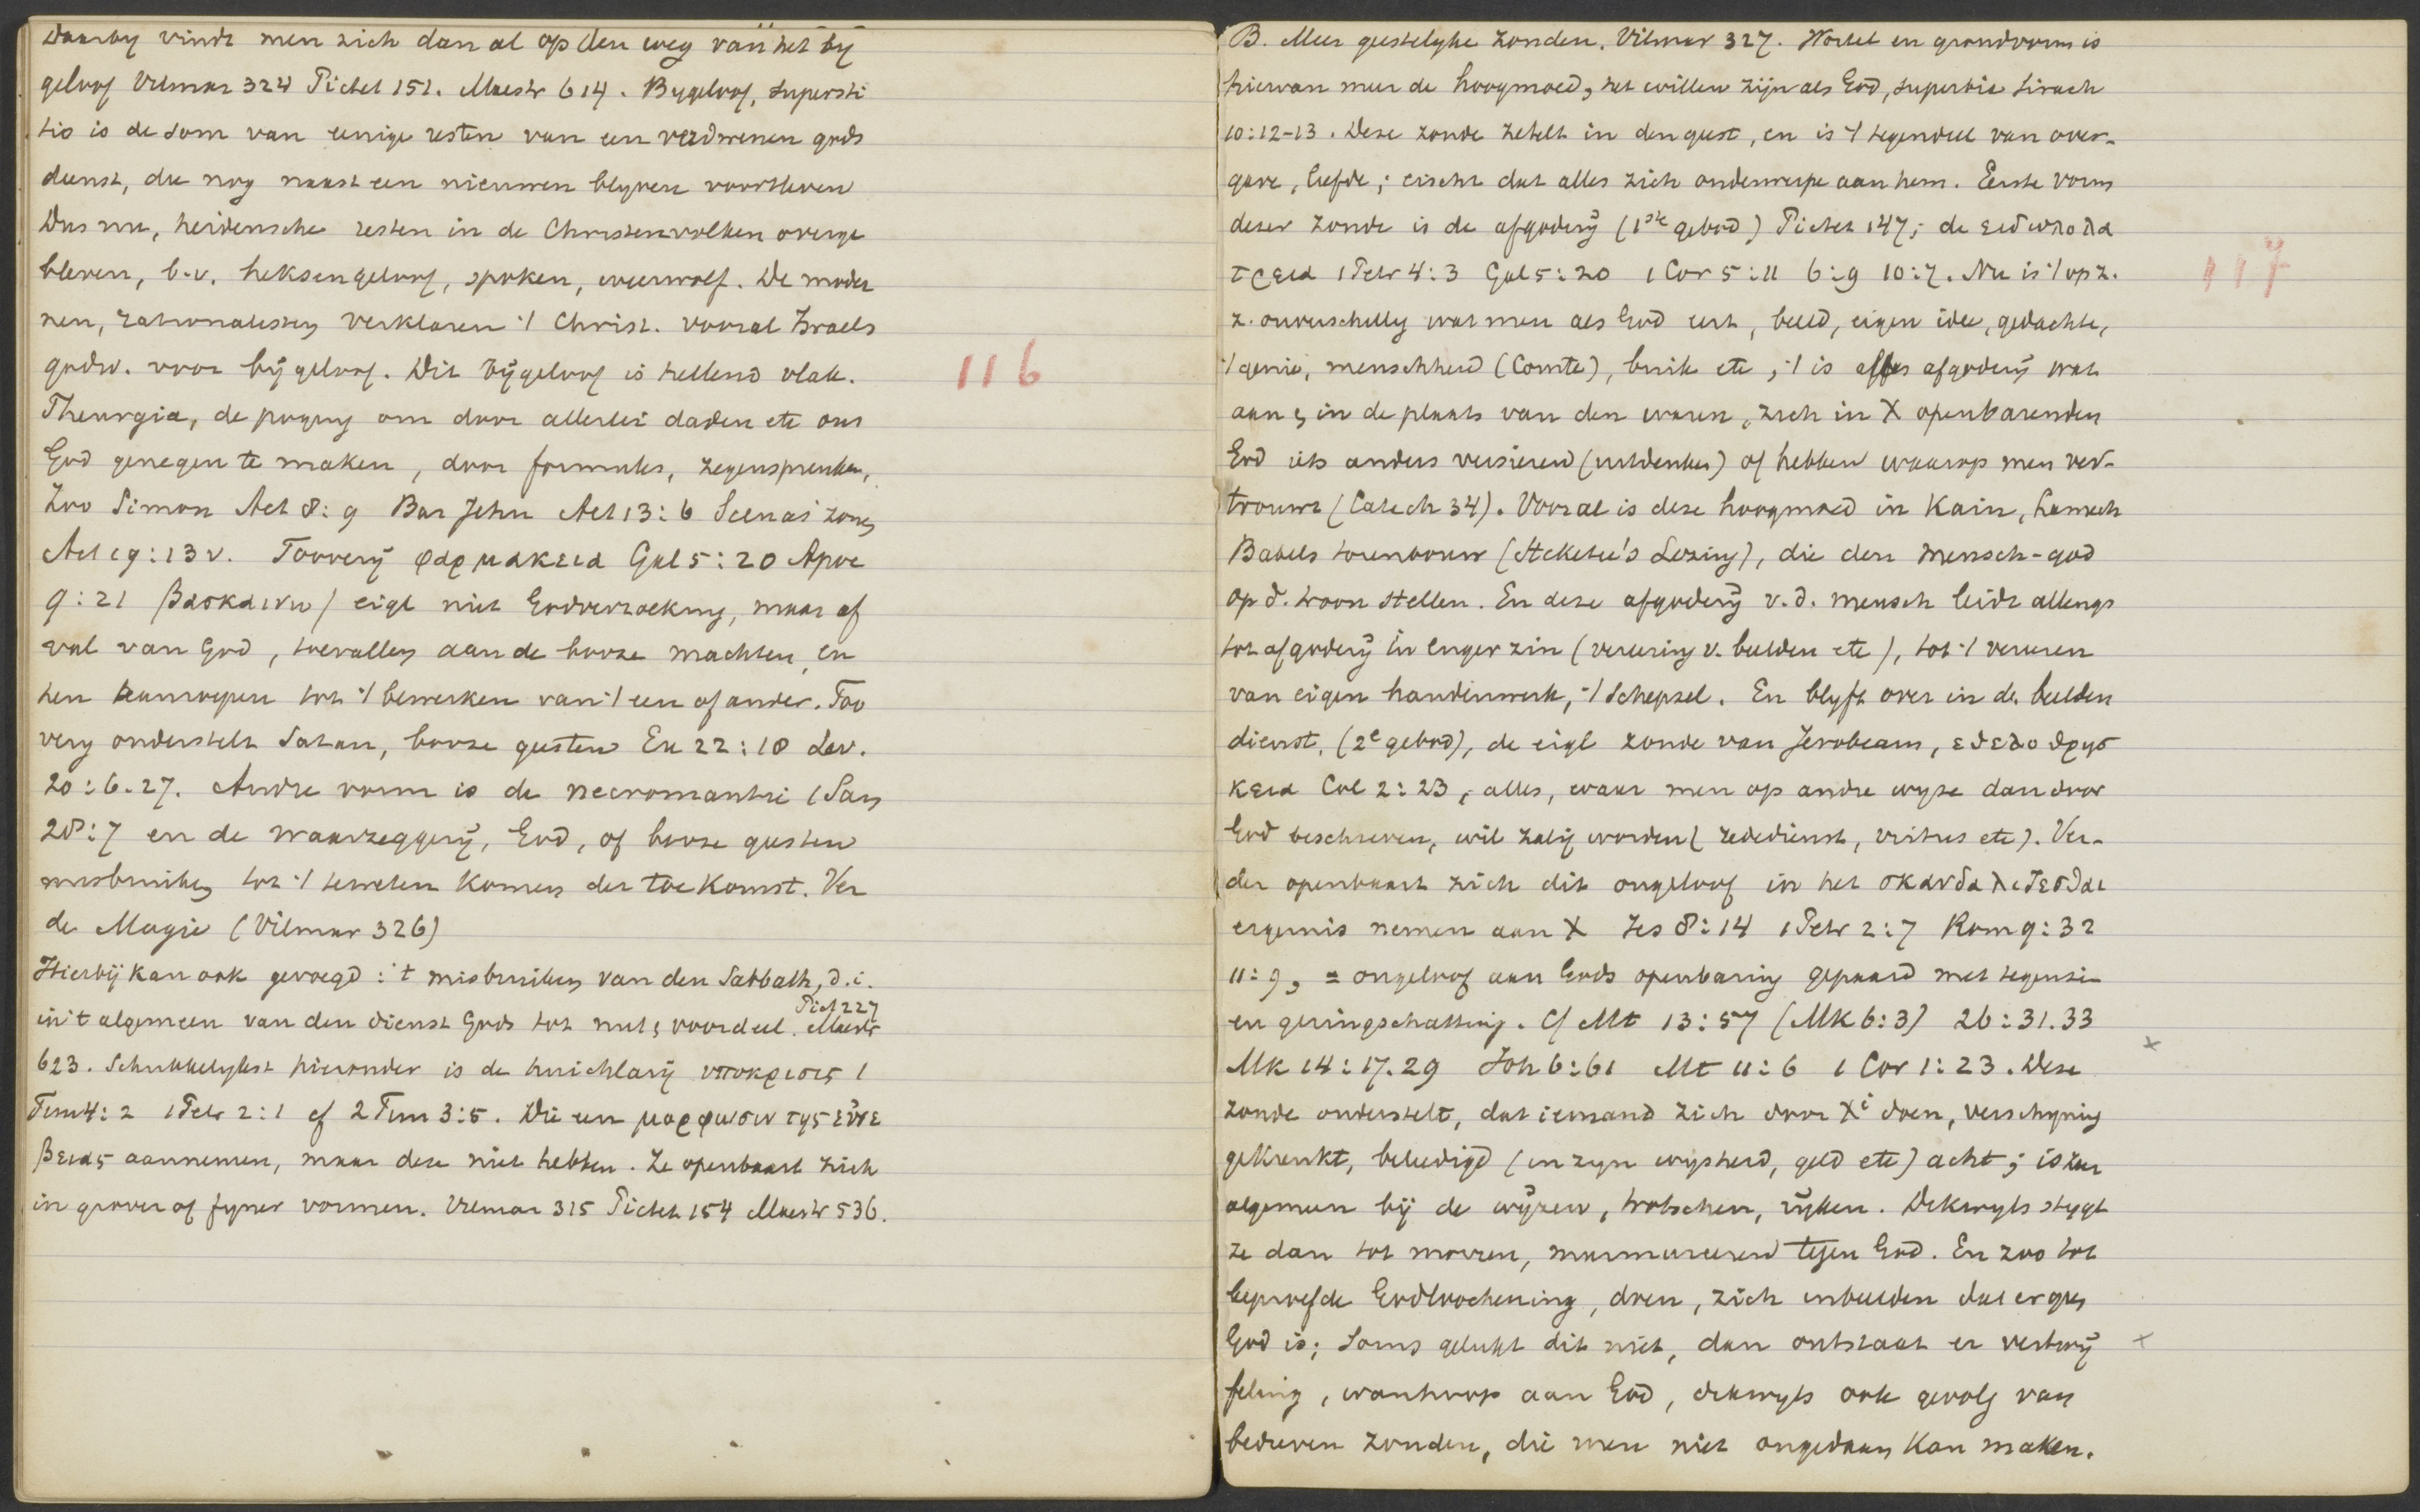 Daarby vindt men zich dan al op den weg van het by
geloof Vilmar 324 Pictet 151. Maestr 614. Bygeloof, supersti
tio is de som van eenige resten van een verdwenen gods
dienst, die nog naast een nieuwen blyven voortleven
Dus nu, heidensche resten in de Christenvolken overge
bleven, b.v. heksengeloof, spoken, weerwolf. De moder
nen, rationalisten verklaren 't Christ. vooral Israels
godsd. voor bijgeloof. Dit bijgeloof is hellend vlak.
116
Theurgia, de poging om door allerlei daden etc ons
God genegen te maken, door formules, zegenspreuken,
Zoo Simon Act 8:9 Bar Jehu Act 13:6 Scevas' zonen
Act 19:13v. Toovery φαρμακεια Gal 5:20 Apoc
9:21 βασκαινω) eigl niet Godverzoeking, maar af
val van God, toevallen aan de booze machten, en
hen aanroepen tot 't bewerken van 't een of ander. Too
very onderstelt Satan, booze geesten Ex 22:18 Lev.
20:6.27. Andre vorm is de necromantie 1 Sam
28:7 en de waarzeggerij, God, of booze geesten
misbruiken tot 't te weten komen der toekomst. Ver
de Magie (Vilmar 326)
Hierbij kan ook gevoegd: 't misbruiken van den Sabbath, d.i.
Pict 227
in 't algemeen van den dienst Gods tot nut & voordeel. Maestr
623. Schrikkelykst hieronder is de huichlarij υποκρισις 1
Tim 4:2 1 Petr 2:1 cf 2 Tim 3:5. Die een μορφωσιν της ευσε
βειας aannemen, maar deze niet hebben. Ze openbaart zich
in grover of fyner vormen. Vilmar 315 Pictet 154 Maestr 536.
B. Meer geestelyke zonden. Vilmar 327. Wortel en grondvorm is
hiervan meer de hoogmoed, het willen zijn als God, superbia Sirach
10:12-13. Deze zonde zetelt in den geest, en is 't tegendeel van over-
gave, liefde; eischt dat alles zich onderwerpe aan hem. Eerste vorm
dezer zonde is de afgoderij (1ste gebod) Pictet 147; de ειδωλολα
τρεια 1 Petr 4:3 Gal 5:20 1 Cor 5:11 6:9 10:7. Nu is 't op z.
117
z. onverschillig wat men als God eert, beeld, eigen idee, gedachte,
't genie, menschheid (Comte), buik etc; 't is alles afgoderij wat
aan & in de plaats van den waren, zich in X openbarenden
God iets anders versieren (uitdenken) of hebben waarop men ver-
trouwt (Catech 34). Vooral is deze hoogmoed in Kain, Lamech
Babels torenbouw (Steketee's Lezing), die den mensch-god
op d. troon stellen. En deze afgoderij v.d. mensch leidt allengs
tot afgoderij in enger zin (vereering v. beelden etc), tot 't vereeren
van eigen handenwerk, 't schepsel. En blyft over in de beelden
dienst, (2e gebod), de eigl zonde van Jerobeam, εθελοθρησ
κεια Col 2:23, alles, waar men op andre wyze dan door
God beschreven, wil zalig worden (rededienst, virtus etc). Ver-
der openbaart zich dit ongeloof in het σκανδαλιζεσθαι
ergernis nemen aan X Jes 8:14 1 Petr 2:7 Rom 9:32
11:9, = ongeloof aan Gods openbaring gepaard met tegenzin
en geringschatting. Cf Mt 13:57 (Mk 6:3) 26:31.33
Mk 14:17.29 Joh 6:61 Mt 11:6 1 Cor 1:23. Deze
zonde onderstelt, dat iemand zich door Xi doen, verschyning
gekrenkt, beleedigd (in zyn wysheid, geld etc) acht; is zeer
algemeen bij de wijzen, trotschen, rijken. Dikwyls stygt
ze dan tot morren, murmureeren tegen God. En zoo tot
beproefde Godloochening, doen, zich inbeelden dat er geen
God is; Soms gelukt dit niet, dan ontstaat er vertwij
feling, wanhoop aan God, dikwyls ook gevolg van
bedreven zonden, die men niet ongedaan kan maken.